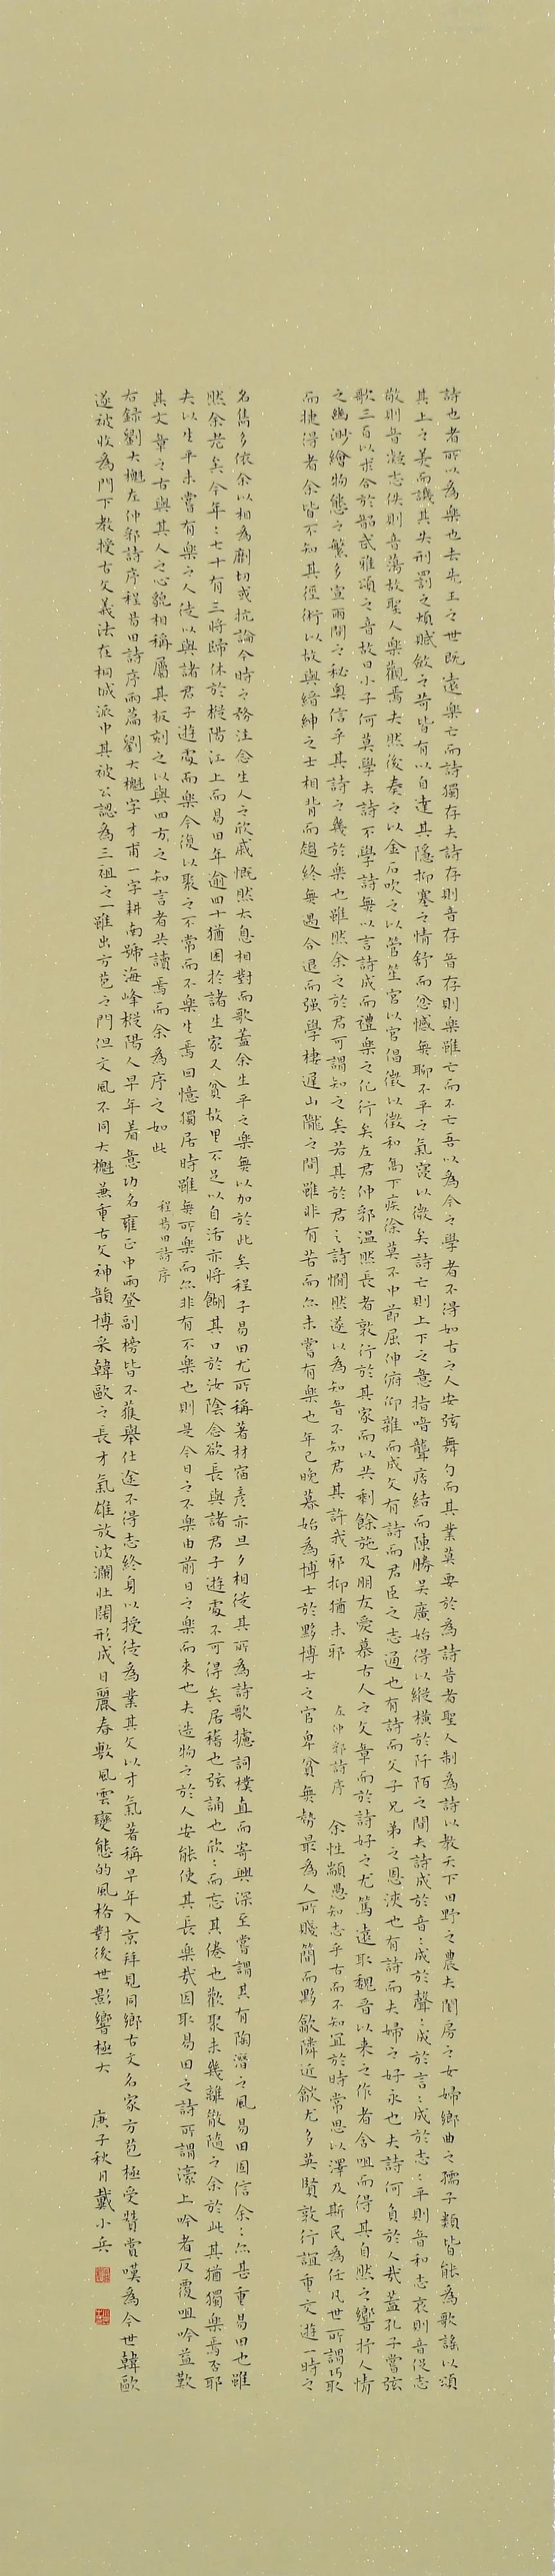 詩也者所以為樂也去先王之世既遠樂亡而詩獨存夫詩存則音存音存則樂雖亡而不亡吾以為今之學者不得如古之人安弦舞勺而其業莫要於為詩昔者聖人制為詩以教天下田野之農夫閨房之女婦鄉曲之孺子類皆能為歌謠以頌
其上之美而譏其失刑罰之煩賦斂之苛皆有以自達其隱抑塞之情舒而忿憾無聊不平之氣寖以微矣詩亡則上下之意指喑聾痞結而陳勝吳廣始得以縱橫於阡陌之間夫詩成於音:成於聲:成於言:成於志:平則音和志哀則音促志
敬則音凝志佚則音蕩故聖人樂觀焉夫然後奏之以金石吹之以管笙宮以宮倡徵以徵和高下疾徐莫不中節屈伸俯仰雜而成文有詩而君臣之志通也有詩而父子兄弟之恩浹也有詩而夫婦之好永也夫詩何負於人哉蓋孔子嘗弦
歌三百以求合於韶武雅頌之音故曰小子何莫學夫詩不學詩無以言詩成而禮樂之化行矣左君仲郛溫然長者敦行於其家而以其剩餘施及朋友愛慕古人之文章而於詩好之尤篤遠取魏晉以來之作者含咀而得其自然之響抒人情
之幽渺繪物態之繁多宣兩間之秘奧信乎其詩之幾於樂也雖然余之於君可謂知之矣若其於君之詩惘然遂以為知音不知君其許我邪抑猶未邪 左仲郛詩序 余性顓愚知志乎古而不知宜於時常思以澤及斯民為任凡世所謂巧取
而捷得者余皆不知其徑術以故與縉紳之士相背而趨終無遇合退而强學棲遲山隴之間雖非有苦而尒未嘗有樂也年已晚暮始為博士於黟博士之官卑貧無勢最為人所賤簡而黟歙隣近歙尤多英賢敦行誼重交遊一時之
名雋多依余以相為劘切或抗論今時之務注念生人之欣戚慨然太息相對而歌蓋余生平之樂無以加於此矣程子易田尤所稱著材宿彥亦旦夕相從其所為詩歌攄詞樸直而寄興深至嘗謂其有陶潛之風易田固信余:尒甚重易田也雖
然余老矣今年:七十有三將歸休於樅陽江上而易田年逾四十猶困於諸生家又貧故里不足以自活亦將餬其口於汝陰念欲長與諸君子遊處不可得矣居稽也弦誦也欣:而忘其倦也歡聚未幾離散隨之余於此其猶獨樂焉否耶
夫以生平未嘗有樂之人徒以與諸君子遊處而樂今復以聚之不常而不樂生焉回憶獨居時雖無所樂而尒非有不樂也則是今日之不樂由前日之樂而來也夫造物之於人安能使其長樂哉因取易田之詩所謂濠上吟者反覆咀吟益歎
其文章之古與其人之心貌相稱屬其板刻之以與四方之知言者共讀焉而余為序之如此 程易田詩序
右録劉大櫆左仲郛詩序程易田詩序兩篇劉大櫆字才甫一字耕南號海峰樅陽人早年着意功名雍正中兩登副榜皆不獲舉仕途不得志終身以授徒為業其文以才氣著稱早年入京拜見同鄉古文名家方苞極受贊賞嘆為今世韓歐
遂被收為門下教授古文義法在桐城派中其被公認為三祖之一雖出方苞之門但文風不同大櫆兼重古文神韻博采韓歐之長才氣雄放波瀾壯闊形成日麗春敷風雲變態的風格對後世影響極大 庚子秋月戴小兵